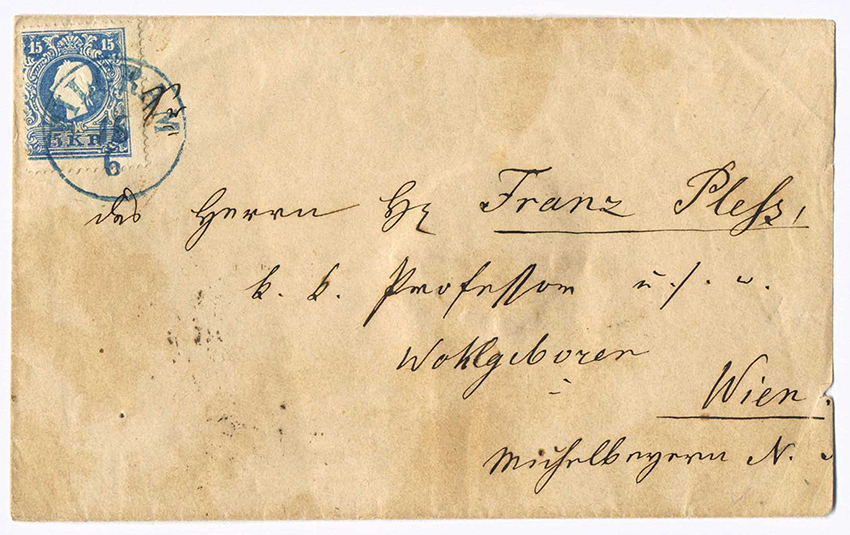 15 15
15 KR
15
6
des Herrn Hr Franz Pless,
k. k. Professor u. s. w.
Wohlgeboren
Wien.
Michelbeyern N.